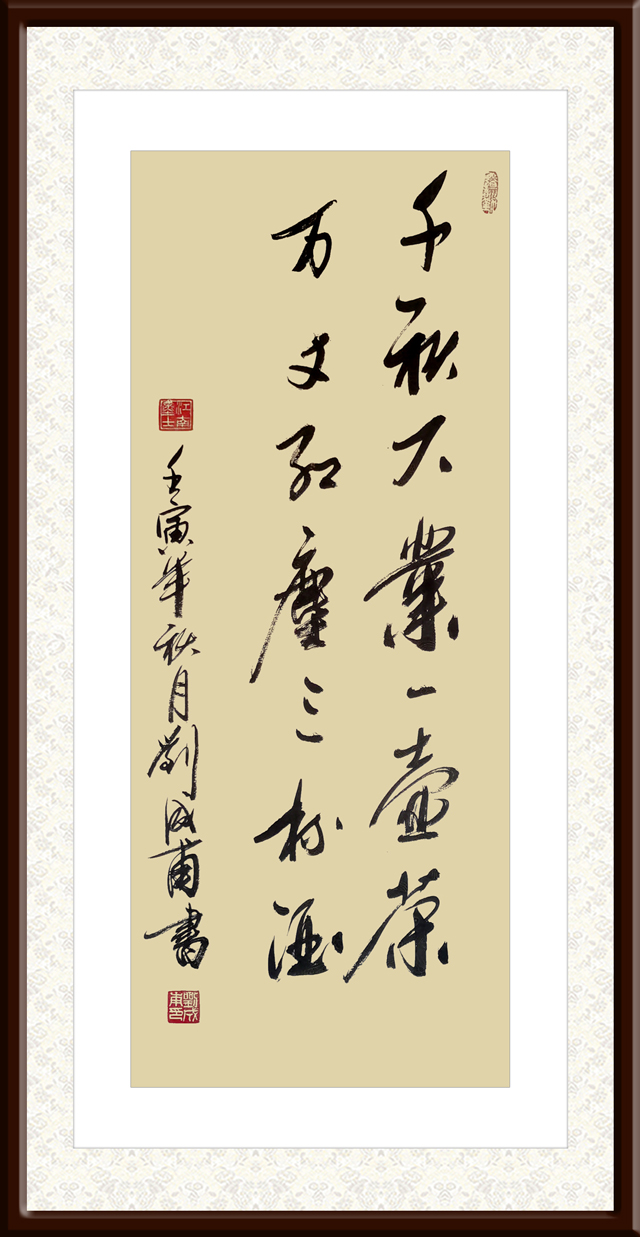 千秋大業一壺茶
万丈紅塵三杯酒
壬寅年秋月劉成甫書
劉成甫印